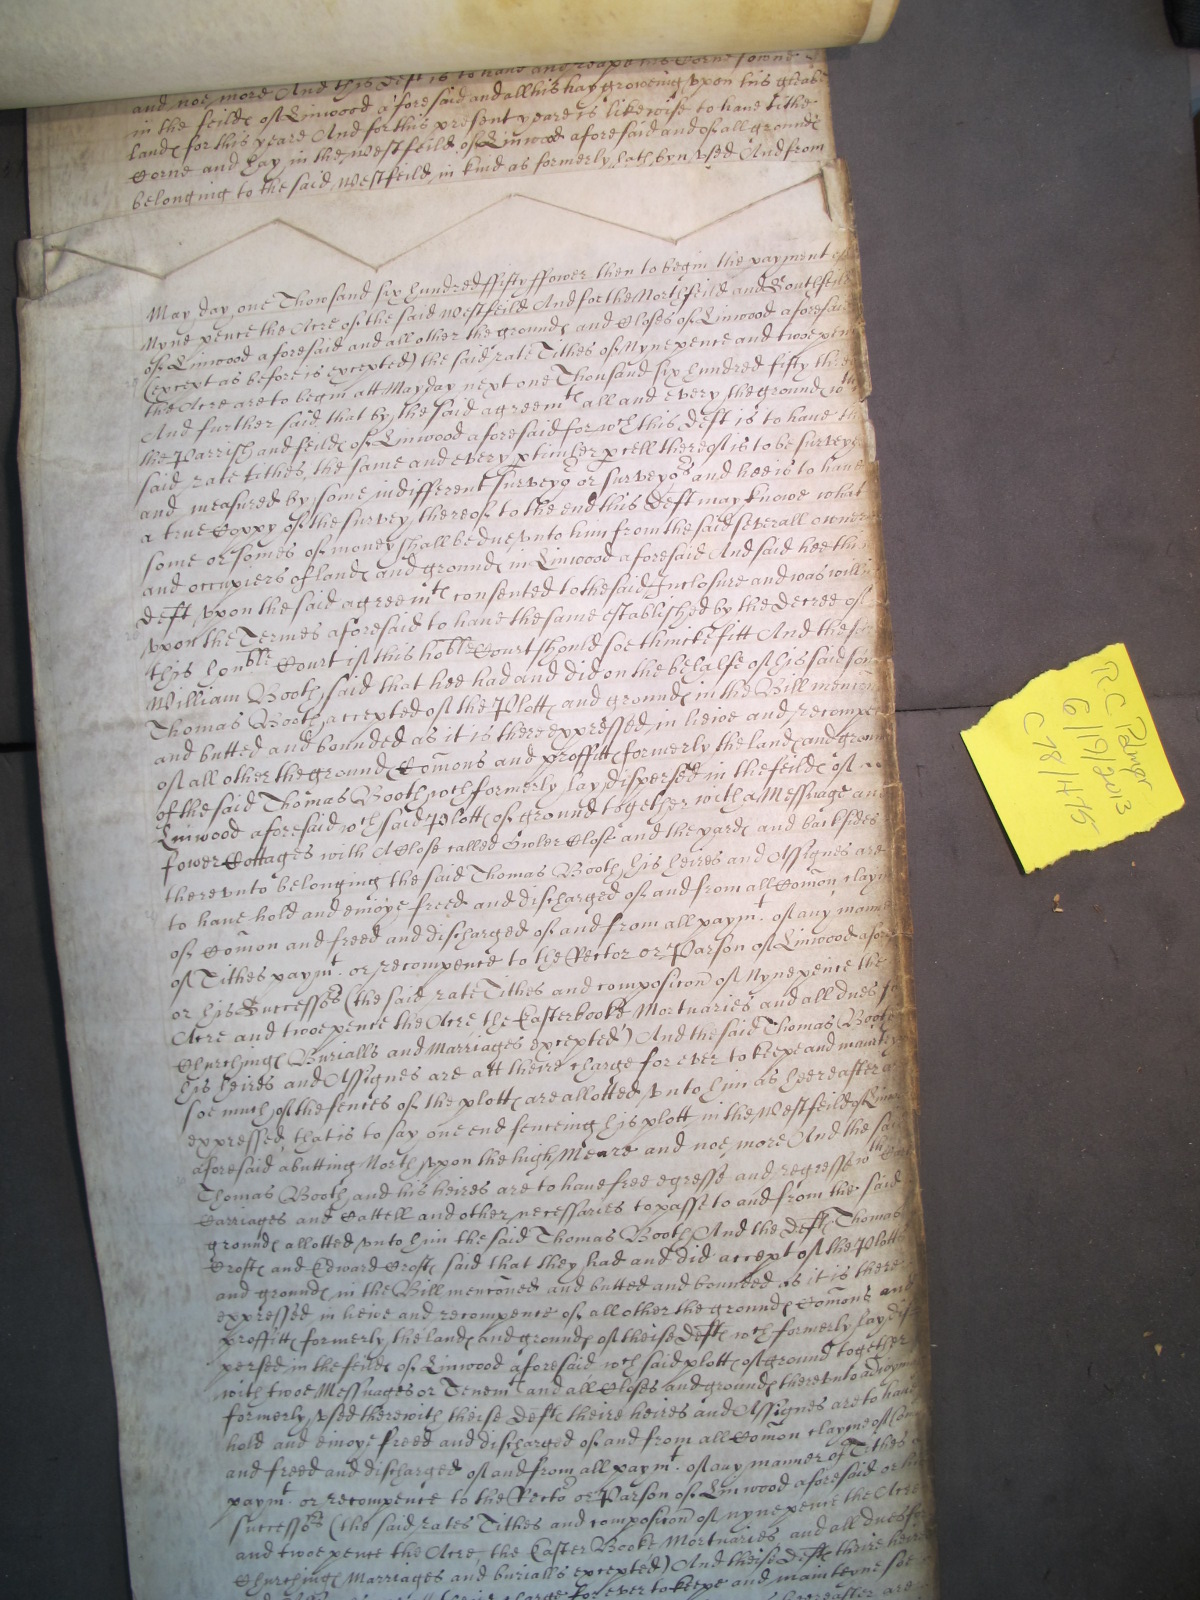 and noe more And this Deft is to have and reape his Corne sowne
in the feild℮ of Linwood aforesaid and all his hay groweing vpon his gleabe
land℮ for this yeare And for this present yeare is likewise to have tithe
Corne and hay in the Westfeild of Linwood aforesaid and of all ground℮
belonging to the said Westfeild in kind as formerly hath byn vsed And from
May day one Thowsand six hundred ffifty ffower then to begin the payment of
Nyne pence the Acre of the said Westfeild And for the Northfeild and Southfeild
of Linwood aforesaid and all other the ground℮ and Closes of Linwood aforesaid
(except as before is excepted) the said rate Tithes of Nyne pence and twoe pence
the Acre are to begin att Mayday next one Thousand six hundred fifty three
And further said that by the said agreemt all and every the ground℮ wthin
the Parrish and feild℮ of Linwood aforesaid for wch this Deft is to have the
said rate tithes the same and every pticuler pcell thereof is to be surveyed
and measured by some indifferent surveyor or surveyors and hee is to have
a true Coppy of the survey thereof to the end this Deft may knowe what
some or somes of money shall be due vnto him from the said severall owners
and occupiers of land℮ and ground℮ in Linwood aforesaid And said hee this
Deft vpon the said agreemt consented to the said Inclosure and was willing
vpon the Termes aforesaid to have the same established by the Decree of
this honble Court if this hoble Court should soe thincke fitt And the
William Booth said that hee had and did on the behalfe of his said son
Thomas Booth accepted of the Plott℮ and ground℮ in the Bill mencioned
and butted and bounded as it is there expressed in liewe and recompence
of all other the ground℮ Comons and proffitt℮ formerly the land℮ and ground
of the said Thomas Booth wch formerly lay dispersed in the feild℮ of
Linwood aforesaid wch said Plott℮ of ground together with a Messuage and
fower Cottages with A Close called Close and the yard℮ and backsides
therevnto belonging the said Thomas Booth his heires and Assignes are
to have hold and enioye freed and discharged of and from all Comon clayme
of Comon and freed and discharged of and from all paymt. of any manner
of Tithes paymt. or recompence to the Rector or Parson of Linwood aforesaid
or his Successors (the said rate Tithes and composicon of Nyne pence the
Acre and twoe pence the Acre the Easterbooke Mortuaries and all dues for
Churching℮ Burialls and Marriages excepted) And the said Thomas Booth
his heires and Assignes are att theire charge for ever to keepe and mainteyne
soe much of the fences of the plott℮ are allotted vnto him as hereafter are
expressed that is to say one end fenceing his plott in the Westfeild of Linwood
aforesaid abutting North vpon the high Meare and noe more And the said
Thomas Booth and his heires are to have free egresse and regresse wth
Carriages and Cattell and other necessaries to passe to and from the said
ground℮ allotted vnto him the said Thomas Booth And the Deft℮ Thomas
Croft℮ and Edward Croft℮ said that they had and did accept of the Plotts
and ground℮ in the Bill mencioned and butted and bounded as it is there
expressed in liewe and recompence of all other the ground℮ Comons and
proffitt℮ formerly the land℮ and ground℮ of theise Deft℮ wch formerly lay dis
persed in the feild℮ of Linwood aforesaid wch said plott℮ of ground together
with twoe Messuages or Tenemt℮ and all Closes and ground℮ therevnto adioyning
formerly vsed therewith theise Deft℮ theire heires and Assignes are to have
hold and enioye freed and discharged of and from all Comon clayme of Comon
and freed and discharged of and from all paymt. of any manner of Tithes
paymt. or recompence to the Rector or Parson of Linwood aforesaid or his
successors (the said rates Tithes and composicon of nyne pence the Acre
and twoe pence the Acre, the Easter Booke Mortuaries and all dues for
Churching℮ Marriages and burialls excepted) And theise Deft℮ theire heires
charge for ever to keepe and mainteyne soe
hereafter are
R C Palmer
6/19/2013
C78/1475